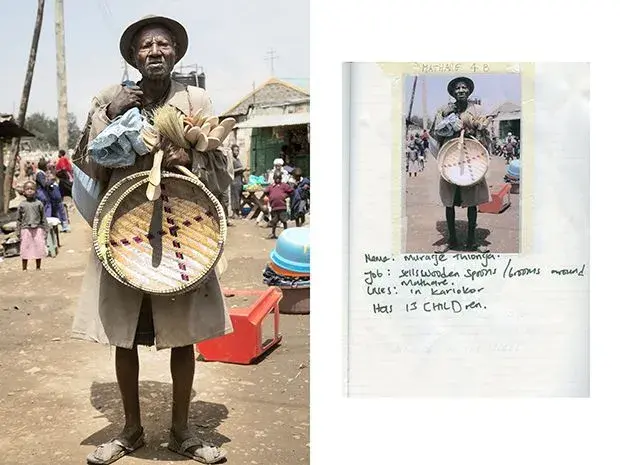 MATHARE 4B
Name: Murage Thionga.
Job: sells wooden spoons / brooms around
Mathare.
Lives: in Kariokor
Has 13 CHILDren.